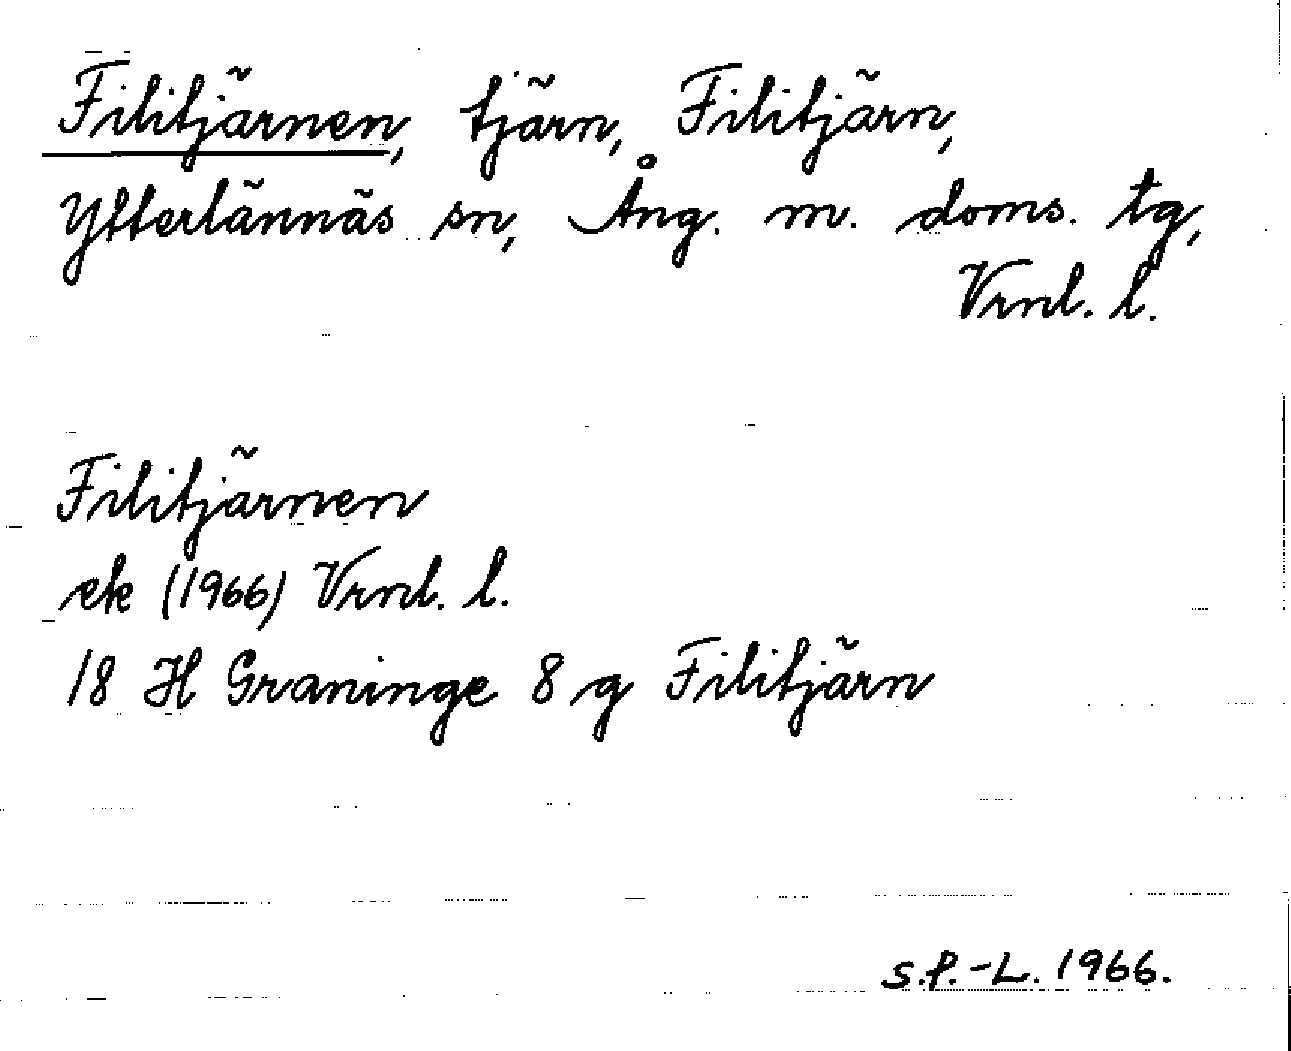 Filitjärnen, tjärn, Filitjärn,
Ytterlännäs sn, Ång. m. doms. tg,
Vrnl. l.
Filitjärnen
ek (1966) Vrnl. l.
18 H Graninge 8 g Filitjärn
S.P.-L. 1966.